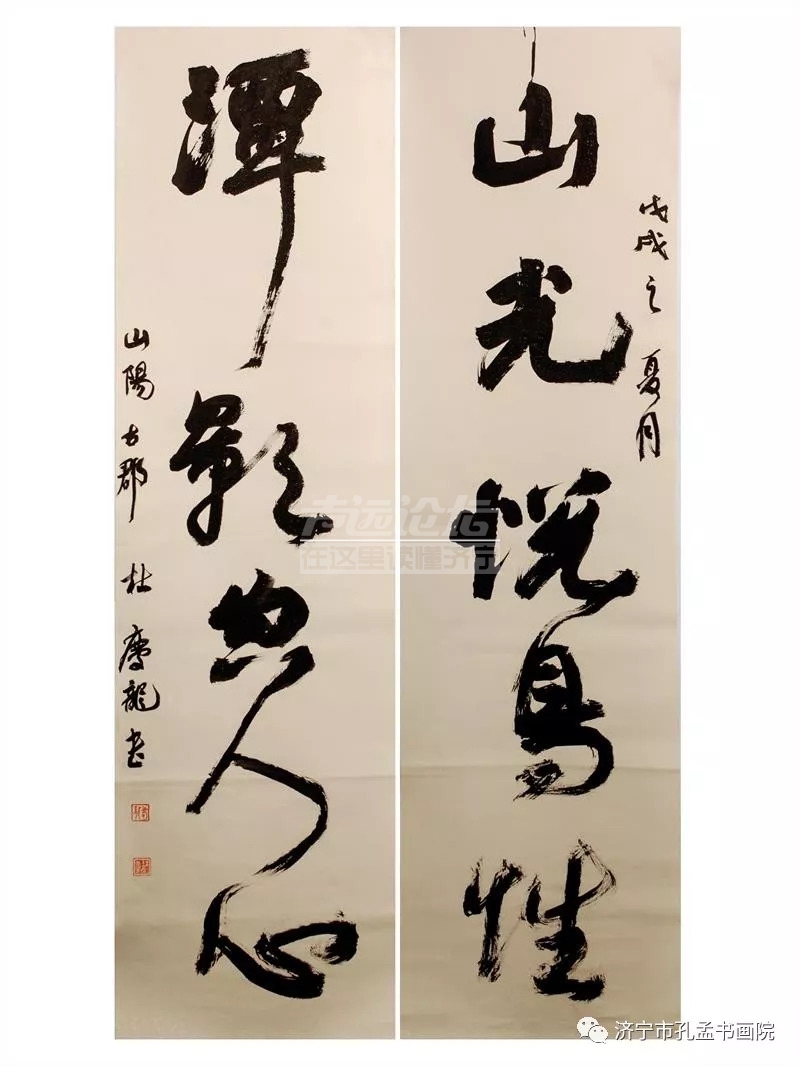 戊戌之夏月
山光悦鳥性
潭影空人心
山陽古郡 杜慶龍書
声远论坛
在这里读懂济宁
济宁市孔孟书画院